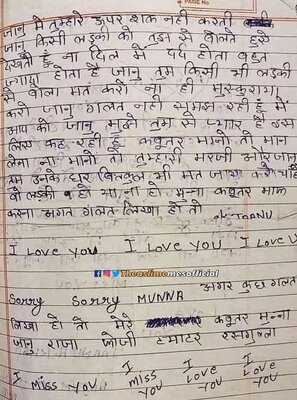 PAGE No
जानु मैं तुम्हारे ऊपर शक नहीं करती
जानु किसी लड़की को तुझ से बोलते हुसे
देखती हूँ ना दिल में दर्द होता बहुत
ज्यादा होता है जानु तुम किसी भी लड़की
से बोला मत करो ना ही मुस्कुराया
करो जानु गलत नहीं समझ रही हूँ मैं
आप को जानु मुझे तुम से प्यार है इस
लिए कह रही हूँ कबुतर मानो तो मान
लेना ना मानो तो तुम्हारी मरजी और जानु
तुम उनके घर बिलकुल भी मत जाया करो चाहे
वो लड़की हो या ना हो मुन्ना कबुतर माफ
करना अगर गलत लिखा हो तो
JAANU
I Love you I Love you I Love U
@Theaslimemesofficial
Sorry Sorry MUNNA अगर कुछ गलत
लिखा हो तो मेरे कबुतर मुन्ना
जानु राजा जोजी टमाटर रसगुल्ला
I Miss you I Miss you I Love you I Love you